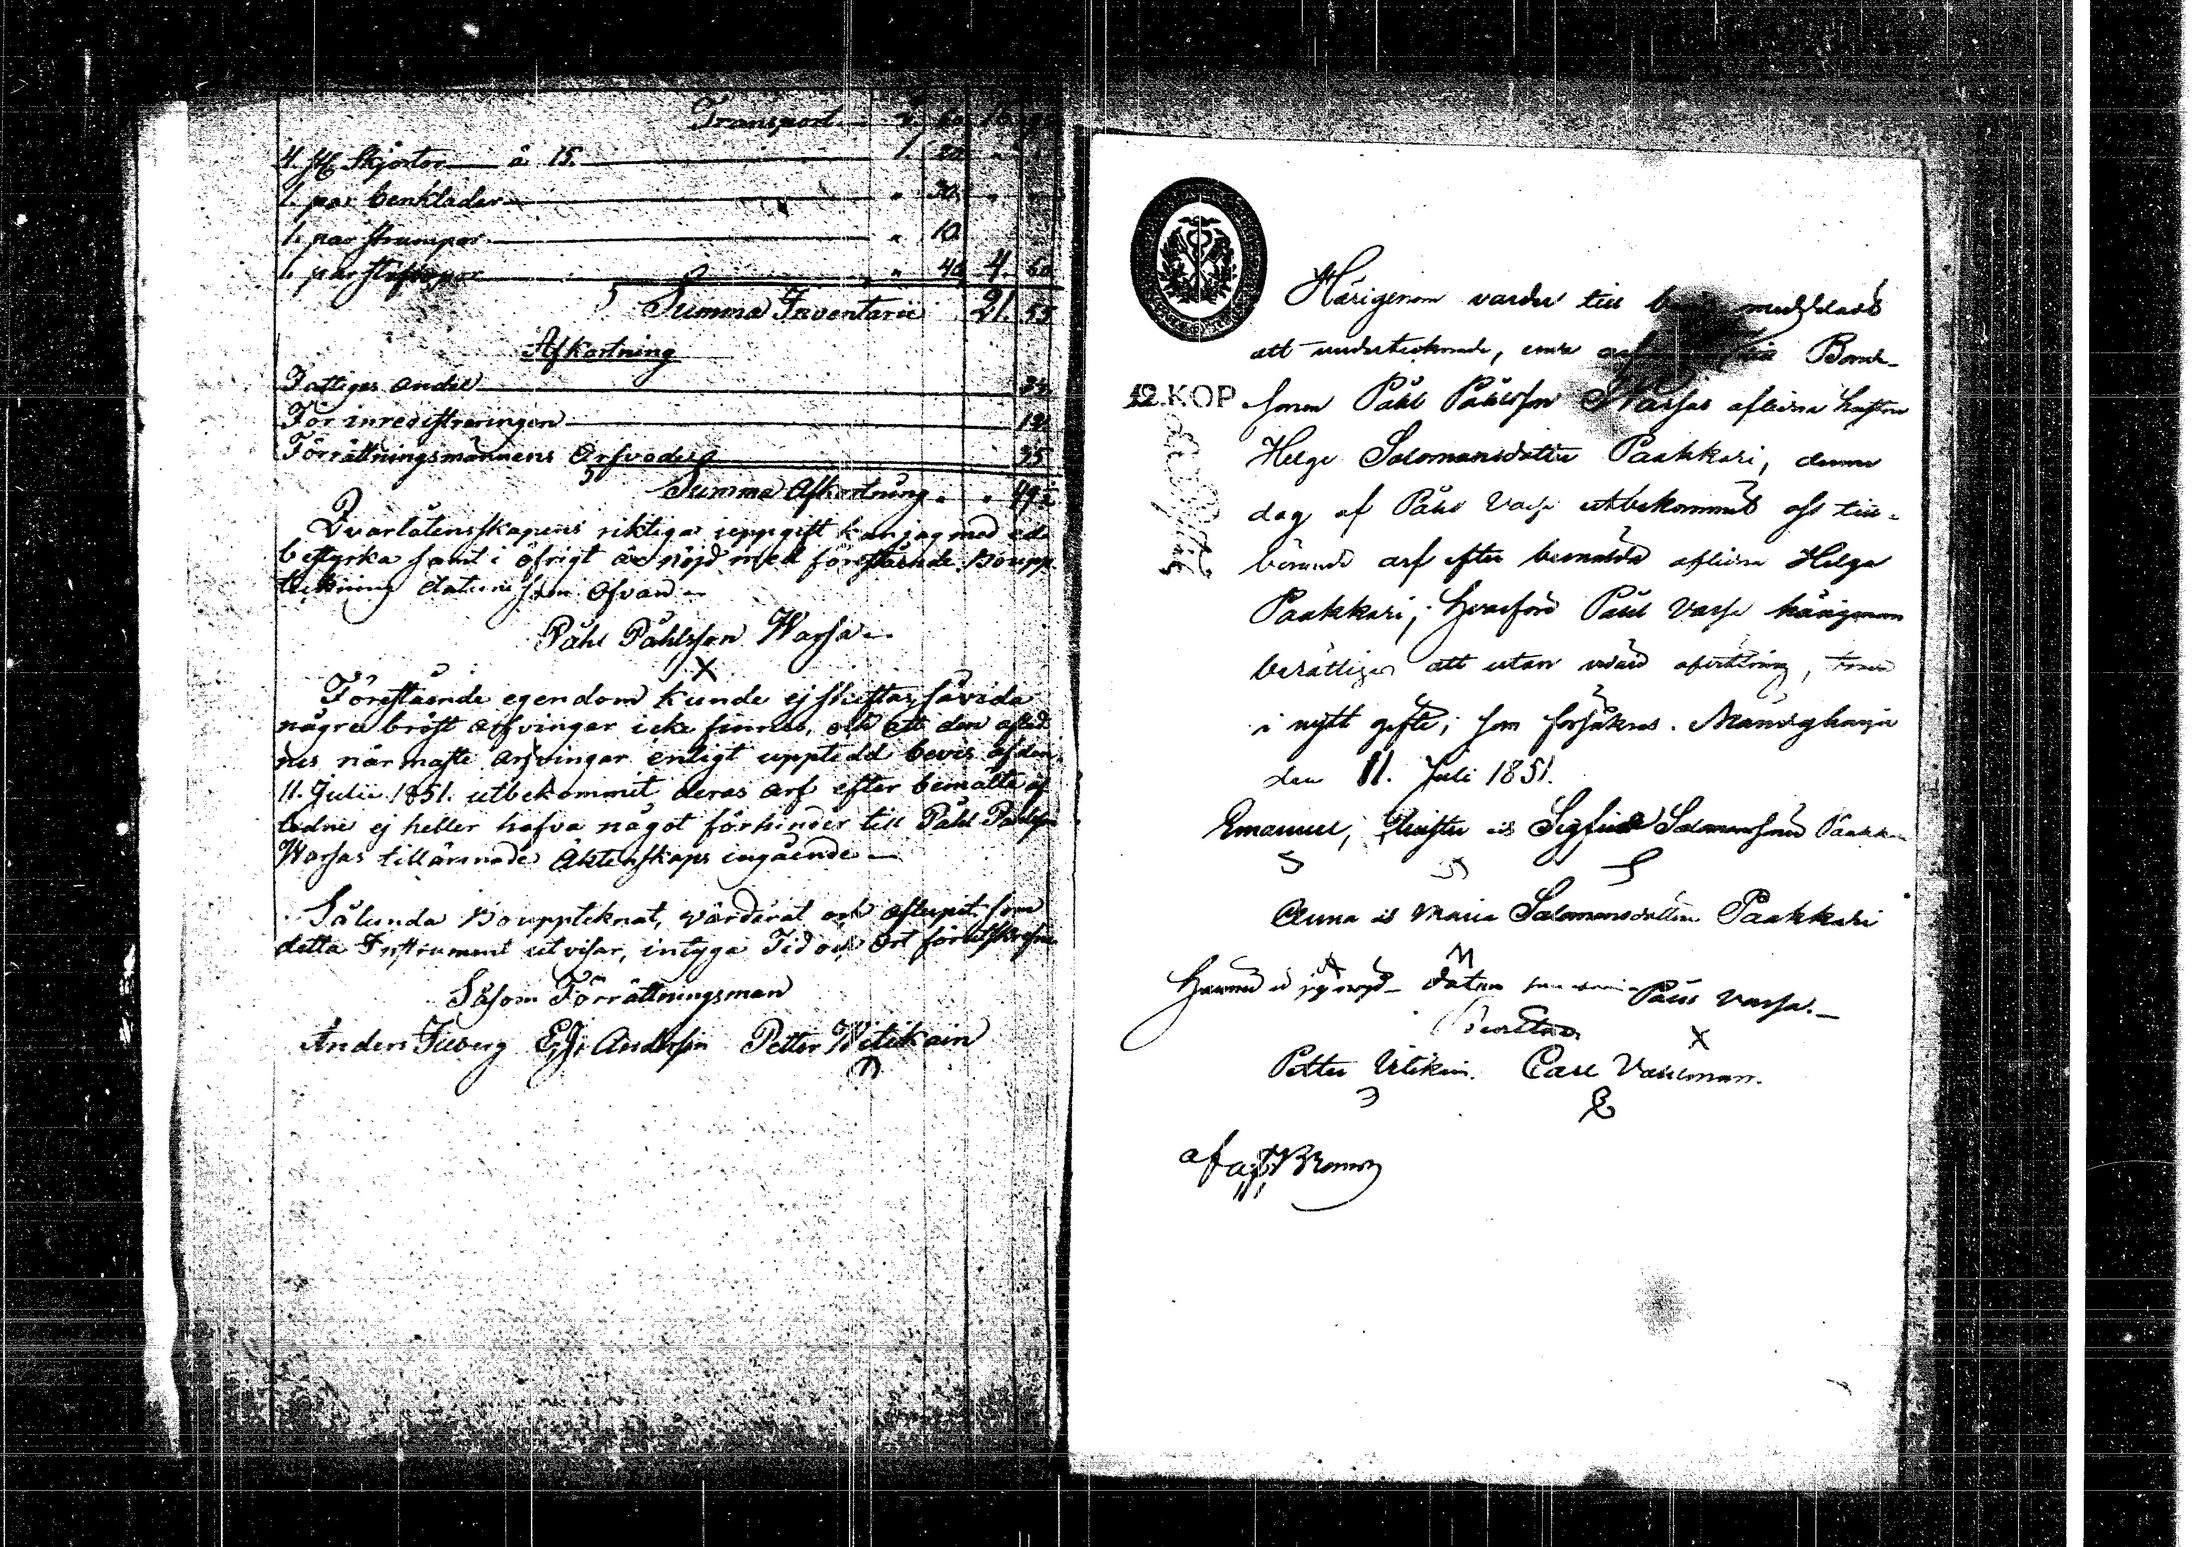 Transport
4. st. Skjortor à 15. 1.
1. par benkläder " 30. "
1. par strumpor " 10.
1. par " 40 4. 60
Summa Inventarii 21. 55
Afkortning
Fattiges andel
För inregistreringen
Förrättningsmännens Arfvode 25
Summa Afkortning. "
Qvarlåtenskapens riktiga uppgift kan jag med ed
bestyrka samt i öfrigt är nöjd med förestående Boupp
tekning datum som ofvan
Påhl Påhlsson Warsa
X
Förestående egendom kunde ej skiftas såvida
några bröst arfvingar icke finnes, och att den aflid
nes närmaste arfvingar enligt upptedd bevis af den
11. Julii 1851. utbekommit deras arf efter bemälte af
ledne ej heller hafva något förhinder till Påhl Påhlson
Warsas tillämnade Äktenskaps ingående
Sålunda Bouppteknat, värderat och aflupit som
detta Instrument utvisar, intyga Tid och Ort förutskrefne
Såsom Förrättningsman
Anders Juberg E. J. Andersin Petter Witikain
Härigenom varder till meddeladt
att undertecknade, Bonde-
12.KOP sonen Påhl Påhlsson Warsas aflidna hustru
Helge Salomonsdotter Paakkari, denna
dag af Påhl Varsa utbekommit oss till-
börande arf efter bemälda aflidna Helga
Paakkari; hvarföre Påhl Varsa härigenom
berättigas att utan vidare afvittring, träda
i nytt gifte; som försäkras. Mäntyharju
den 11. Juli 1851.
Emanuel, Christer och Sigfrid Salomonssöner Paakkari
Anna och Maria Salomonsdöttrar Paakkari
Härmed är jag nöjd datum som ofvan Påhl Varsa.
Bevittna X
Petter Vitikain. Carl Vahlman.